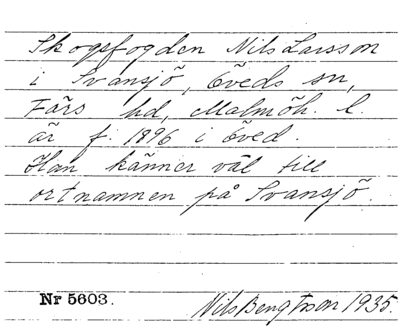 Skogsfogden Nils Larsson
i Svansjö, Öveds sn,
Färs hd, Malmöh. l.
är f. 1896 i Öved.
Han känner väl till
ortnamnen på Svansjö.
Nr 5603.
Nils Bengtsson 1935.